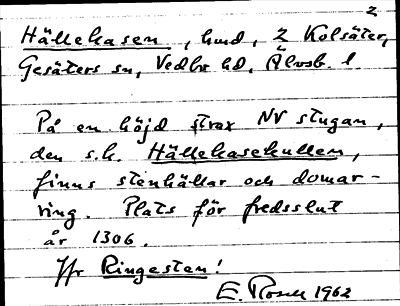 2
Hällekasen, hmd, 2 Kolsäter,
Gesäters sn, Vedbo hd, Älvsb. l
På en höjd strax NV stugan,
den s.k. Hällekasekullen,
finns stenhällar och domar-
ring. Plats för fredsslut
år 1306.
Jfr Ringesten!
E. Rosell 1962